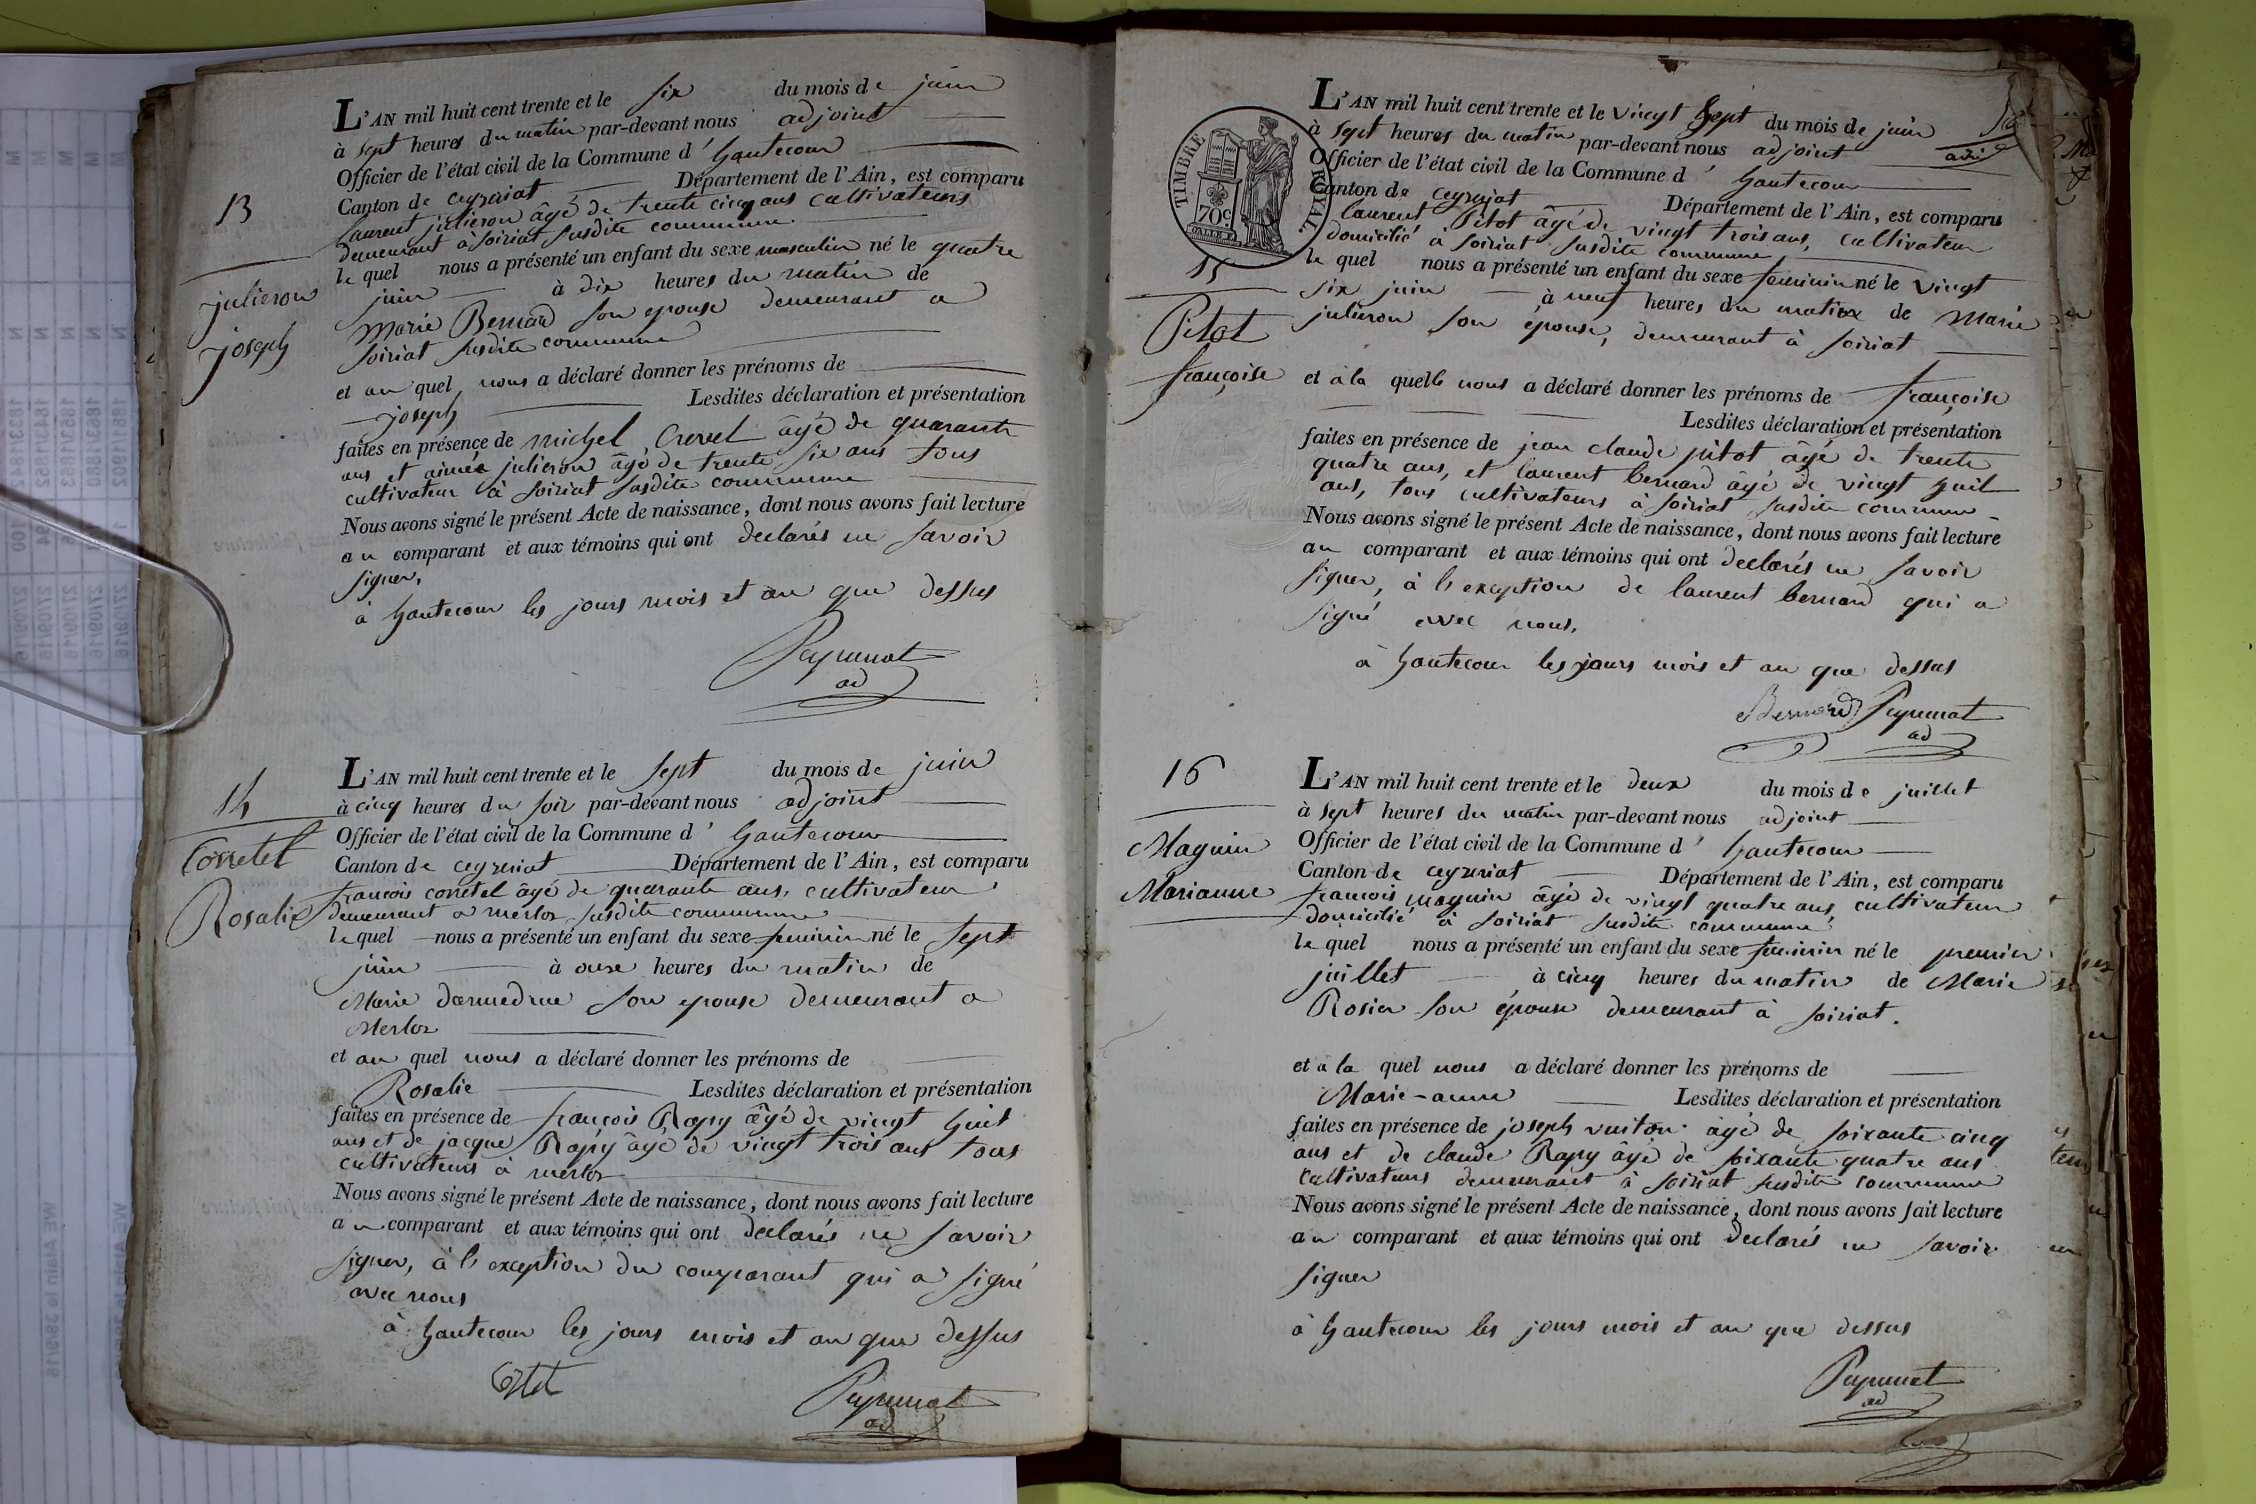 13
julieron
joseph
L'AN mil huit cent trente et le six du mois de juin
à sept heures du matin par-devant nous adjoint
Officier de l'état civil de la Commune d' hautecour
Canton de ceyzeriat Département de l'Ain, est comparu
laurent julieron âgé de trente cinq ans cultivateurs
demeurant à soiriat susdite commune
le quel nous a présenté un enfant du sexe masculin né le quatre
juin à dix heures du matin de
Marie Bernard son epouse demeurant a
soiriat susdite commune
et au quel nous a déclaré donner les prénoms de
joseph Lesdites déclaration et présentation
faites en présence de michel Crevel âgé de quarante
ans et aimée julieron âgé de trente six ans tous
cultivateur à soiriat susdite commune
Nous avons signé le présent Acte de naissance, dont nous avons fait lecture
au comparant et aux témoins qui ont declarés ne savoir
signer,
à hautecour les jours mois et an que dessus
ad
14
Corretel
Rosalie
L'AN mil huit cent trente et le sept du mois de juin
à cinq heures du soir par-devant nous adjoint
Officier de l'état civil de la Commune d' hautecour
Canton de ceyzeriat Département de l'Ain, est comparu
francois corretel âgé de quarante ans, cultivateur
demeurant a merloz susdite commune
le quel nous a présenté un enfant du sexe feminin né le sept
juin à onze heures du matin de
Marie son epouse demeurant a
Merloz
et au quel nous a déclaré donner les prénoms de
Rosalie Lesdites déclaration et présentation
faites en présence de françois Ragy âgé de vingt huit
ans et de jacque Ragy âgé de vingt trois ans tous
cultivateurs à merloz
Nous avons signé le présent Acte de naissance, dont nous avons fait lecture
au comparant et aux témoins qui ont declarés ne savoir
signer, à l'exception du comparant qui a signé
avec nous
à hautecour les jours mois et an que dessus
ad
TIMBRE ROYAL.
70c
15
Pitot
françoise
L'AN mil huit cent trente et le vingt sept du mois de juin
à sept heures du matin par-devant nous adjoint
Officier de l'état civil de la Commune d' hautecour
Canton de ceyzeriat Département de l'Ain, est comparu
laurent Pitot âgé de vingt trois ans, cultivateur
domicilié à soiriat susdite commune
le quel nous a présenté un enfant du sexe feminin né le vingt
six juin à neuf heures du matin de Marie
julieron son épouse, demeurant à soiriat
et à la quelle nous a déclaré donner les prénoms de françoise
Lesdites déclaration et présentation
faites en présence de jean claude pitot âgé de trente
quatre ans, et laurent bernard âgé de vingt huit
ans, tous cultivateurs à soiriat susdite commune
Nous avons signé le présent Acte de naissance, dont nous avons fait lecture
au comparant et aux témoins qui ont declarés ne savoir
signer, à l'exception de laurent bernard qui a
signé avec nous.
à hautecour les jours mois et an que dessus
Bernard
ad
16
Maguin
Marianne
L'AN mil huit cent trente et le deux du mois de juillet
à sept heures du matin par-devant nous adjoint
Officier de l'état civil de la Commune d' hautecour
Canton de ceyzeriat Département de l'Ain, est comparu
francois maguin âgé de vingt quatre ans, cultivateur
domicilié à soiriat susdite commune
le quel nous a présenté un enfant du sexe feminin né le premier
juillet à cinq heures du matin de Marie
Rosier son épouse demeurant à soiriat.
et à la quel nous a déclaré donner les prénoms de
Marie-anne Lesdites déclaration et présentation
faites en présence de joseph vuiton âgé de soixante cinq
ans et de claude Ragy âgé de soixante quatre ans
cultivateurs demeurant à soiriat susdite commune
Nous avons signé le présent Acte de naissance, dont nous avons fait lecture
au comparant et aux témoins qui ont declarés ne savoir
signer
à hautecour les jours mois et an que dessus
ad